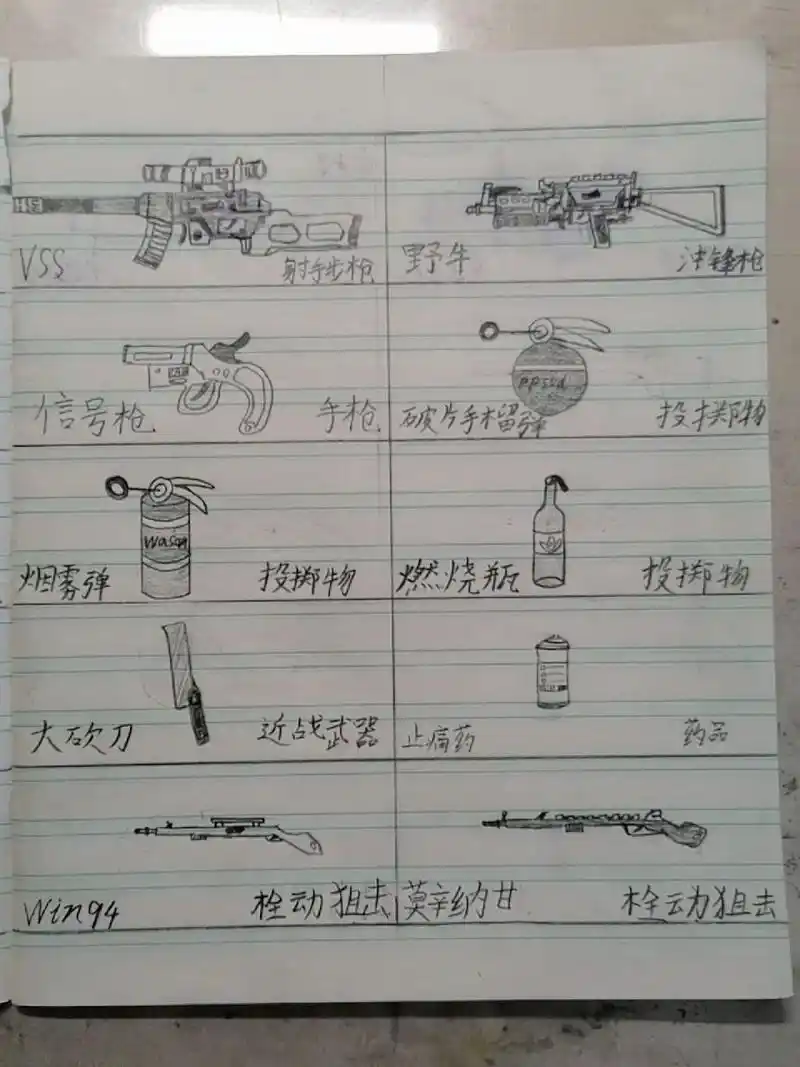 VSS 射手步枪
野牛 冲锋枪
信号枪 手枪
ppssd
破片手榴弹 投掷物
wasan
烟雾弹 投掷物
燃烧瓶 投掷物
大砍刀 近战武器
止痛药 药品
Win94 栓动狙击
莫辛纳甘 栓动狙击